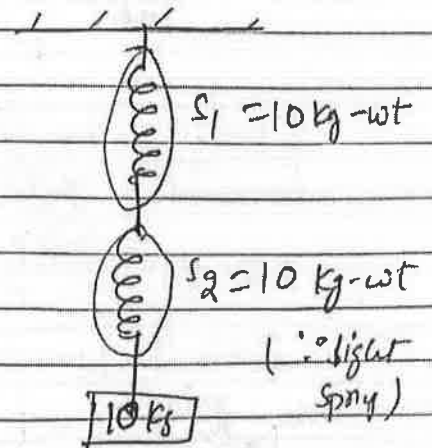 S1 = 10 kg-wt
S2 = 10 kg-wt
(∵ light
spring)
10 kg